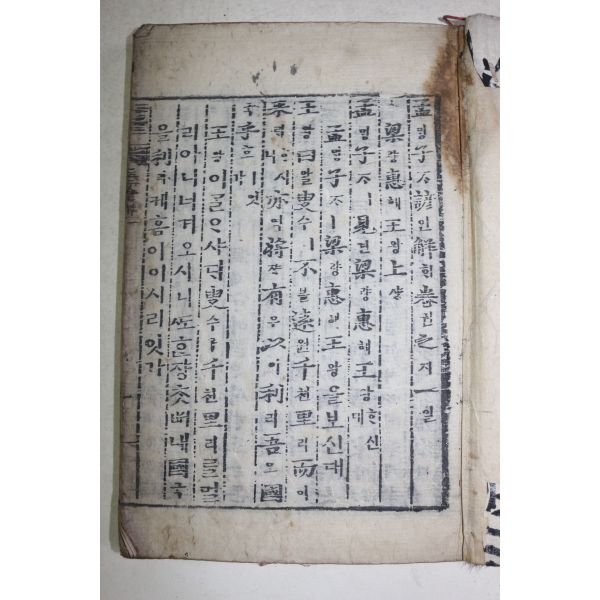 孟ᄆᆡᆼ子ᄌᆞ諺언解ᄒᆡ卷권之지一일
梁량惠혜王왕上샹
孟ᄆᆡᆼ子ᄌᆞㅣ見견梁량惠혜王왕ᄒᆞ신대
孟ᄆᆡᆼ子ᄌᆞㅣ梁량惠혜王왕을보신대
王왕曰왈叟수ㅣ不블遠원千쳔里리而이
來ᄅᆡᄒᆞ시니亦역將쟝有유以이利리吾오國
국乎호ㅣ잇가
王왕이ᄀᆞᆯᄋᆞ샤ᄃᆡ叟수ㅣ千쳔里리ᄅᆞᆯ멀
리아니너겨오시니ᄯᅩᄒᆞᆫ쟝ᄎᆞᆺ내國국
을利리케홈이이시리잇가